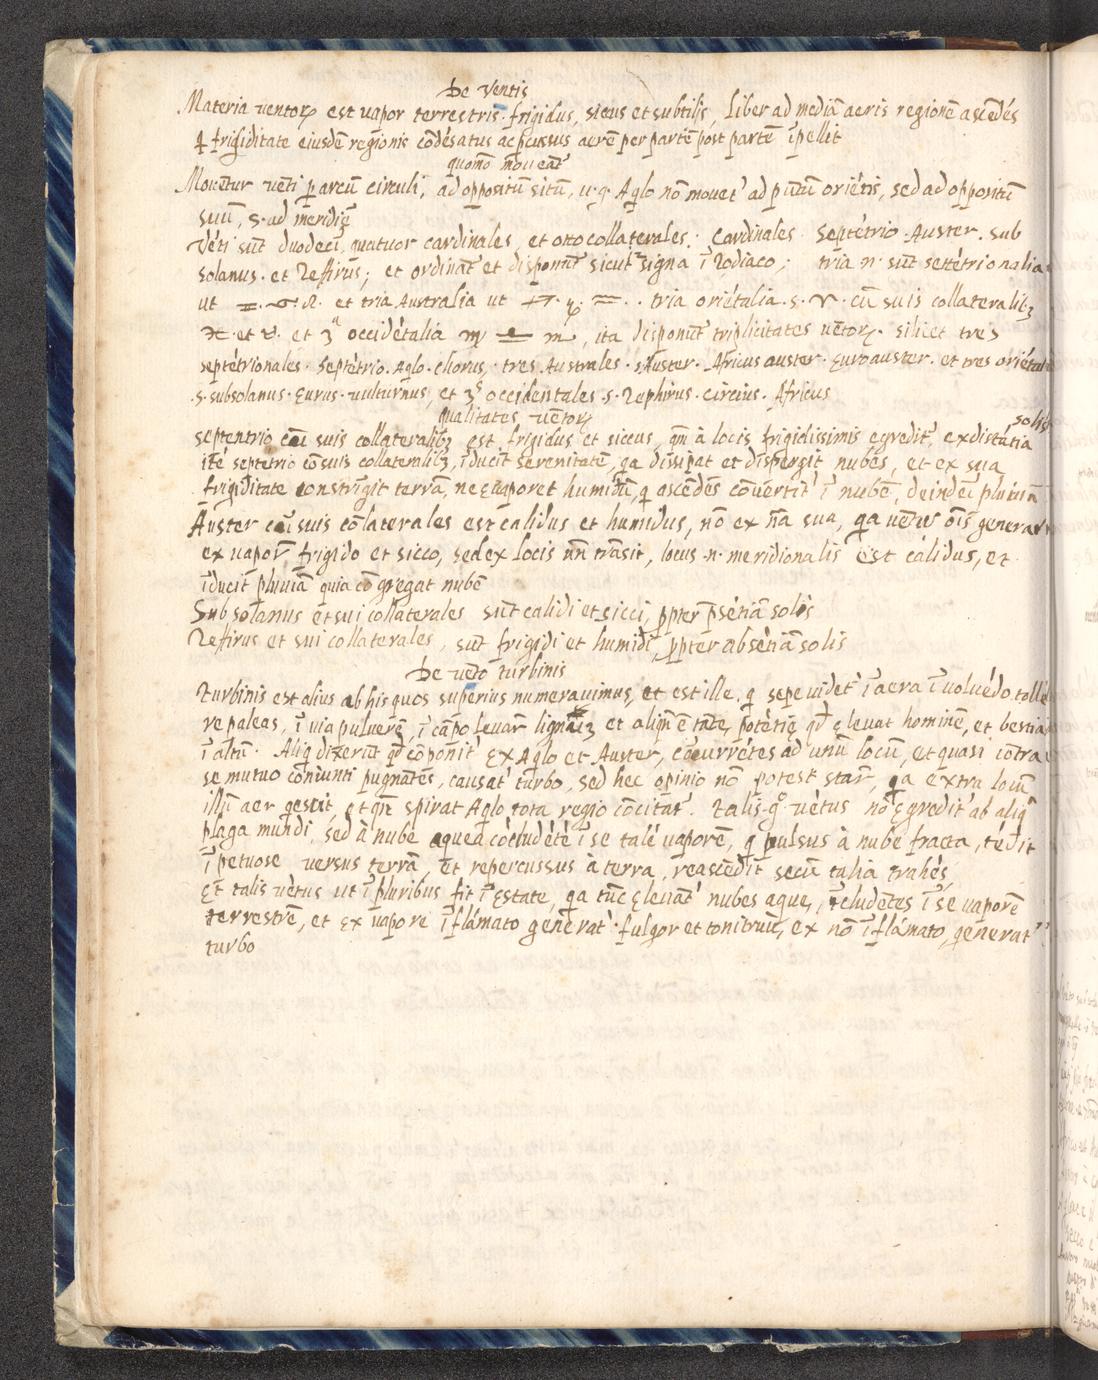 De Ventis
Materia ventorꝝ est uapor terrestris frigidus, sicus et subtilis, Liber ad mediā aeris regionē ascēdēs
q̨ frigiditate eiusdē regionis cōdēsatus ac ꝑcussus aerē per partē post partē īpellit
quomō moueāt᾽
Mouētur uēti ꝑ arcū circuli, ad oppositū sitū, u.g. Aqlo nō mouet᾽ ad pūtū oriētis, sed ad oppositū
suū, s. ad meridiē
Vēti sūt duodecī, quatuor cardinales, et otto collaterales. Cardinales. Septētrio. Auster. sub
solanus. et Zeffirus; et ordinant᾽ et disponunt᾽ sicut signa ī Zodiaco; tria n. sūt settētrionalia
ut ♊. ♋. ♌. et tria Australia ut ♐. ♑. ♒. tria oriētalia. s. ♈. cū suis collateralibꝫ
♓. et ♉. et 3ᵃ occidētalia ♍ ♎ ♏, ita disponūt᾽ triplicitates uētorꝝ. silicet tres
septētrionales. Septētrio. Aqlo. chorus. tres Australes. s. Auster. Africus auster. Euroauster. et tres oriētal
.s. subsolanus. Eurus. uulturnus, et 3ˢ occidentales .s. Zephirus. circius. Africus
qualitates uētorꝝ
solis
septentrio cū suis collateralibꝫ est frigidus et siccus, qm̄ à locis frigidissimis egredit᾽, ex distātia
itē septētrio cō suis collateralibꝫ, īducit serenitatē, qa dissipat et dispergit nubēs, et ex sua
frigiditate constrīgit terrā, ne euaporet humidū, q ascēdēs cōuertit᾽ ī nubē, deinde ī pluuiā
Auster cū suis cōlaterales est calidus et humidus, nō ex nā sua, qa uētus oīs generat
ex uapor̄ frigido et sicco, sed ex locis un̄ trāsit, locus .n. meridionalis est calidus, et
īducit pluuiā quia cōgregat nubē
Subsolanus et sui collaterales sūt calidi et sicci, ꝓpter p̄sētiā solis
Zeffirus et sui collaterales, sūt frigidi et humidi, ꝓpter absētiā solis
De uēto turbinis
Turbinis est alius ab his quos superius numerauimus, et est ille, q sepe uidet᾽ ī aera ī uoluēdo tolle
re paleas, ī uia puluerē, ī cāpo leuar̄ et aliqn̄ ē tāte potētię qd̄ eleuat hominē, et bestia
ī altū. Aliq dixerūt qd̄ cōponit᾽ ex Aqlo et Auster, cōcurrētes ad unū locū, et quasi cōtra
se mutuo coniunti pugnātes, causat᾽ turbo, sed hec opinio nō potest star̄, qa extra locū
illū aer qescit, et qn̄ spirat Aqlo tota regio cōcitat᾽. Talis gº uētus nō egredit᾽ ab aliq
plaga mundi, sed à nube aquea cōcludētē ī se talē uaporē, q pulsus à nube fracta, tēdit
īpetuose uersus terrā et repercussus à terra, reascēdit secū talia trahēs,
Et talis uētus ut ī pluribus fit ī Estate, qa tūc eleuāt᾽ nubes aque, īcludētes ī se uaporē
terrestrē, et ex uapore īflāmato generat᾽ fulgor et tonitruū, ex nō īflāmato generat᾽
turbo